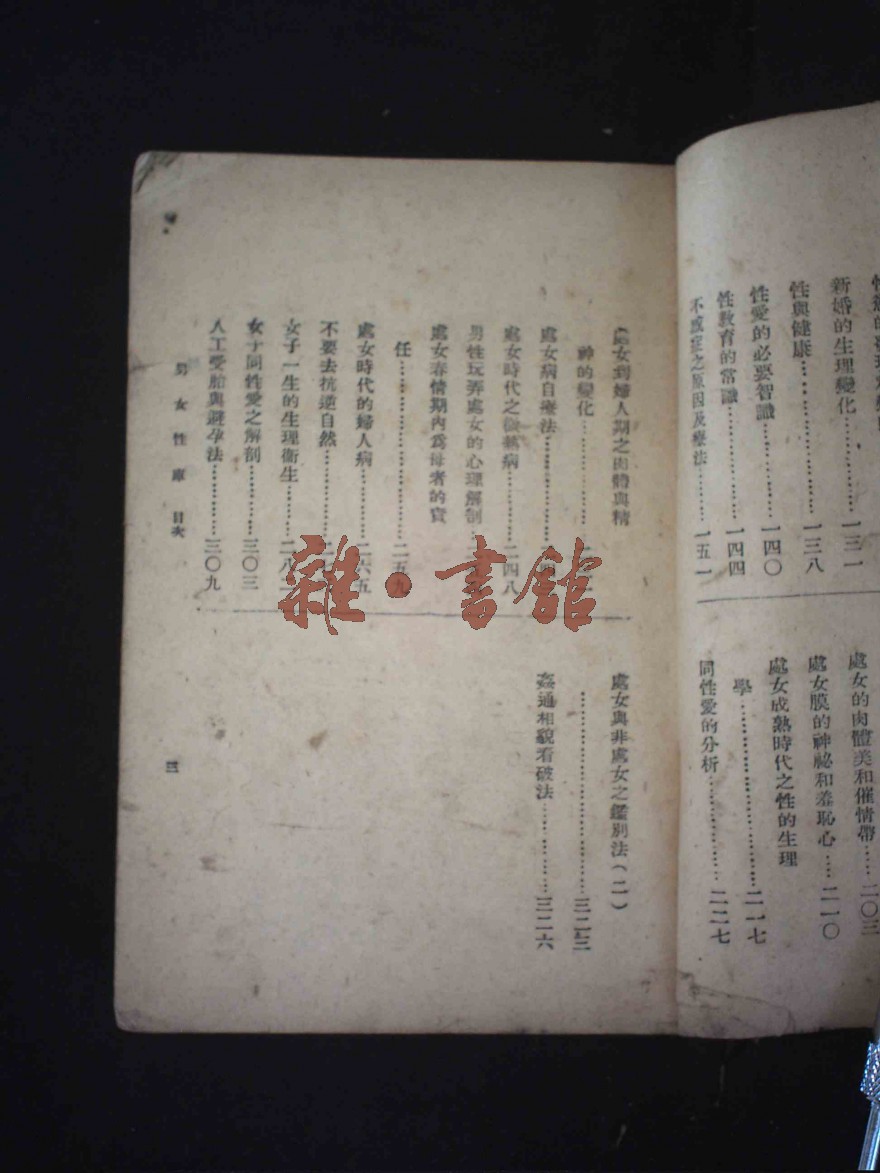 新婚的生理變化……一三一
性與健康……一三八
性愛的必要智識……一四〇
性教育的常識……一四四
不感症之原因及療法……一五一
處女的肉體美和催情帶……二〇三
處女膜的神祕和羞恥心……二一〇
處女成熟時代之性的生理
學……二一七
同性愛的分析……二二七
處女到婦人期之肉體與精
神的變化……
處女病自療法……
處女時代之
病……二四八
男性玩弄處女的心理解剖……
處女春情期內爲母者的責
任……二五九
處女時代的婦人病……二六五
不要去抗逆自然……
女子一生的生理衞生……二八
女子同性愛之解剖……三〇三
人工受胎與避孕法……三〇九
處女與非處女之鑑別法(二)
……三二三
姦通相貌看破法……三二六
男女性庫 目次
三
雜·書館